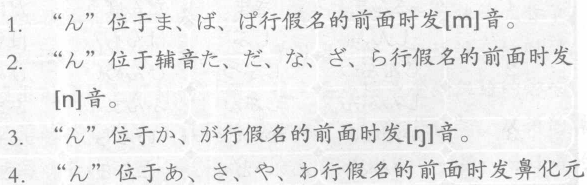 1. “ん”位于ま、ば、ぱ行假名的前面时发[m]音。
2. “ん”位于辅音た、だ、な、ざ、ら行假名的前面时发
[n]音。
3. “ん”位于か、が行假名的前面时发[ŋ]音。
4. “ん”位于あ、さ、や、わ行假名的前面时发鼻化元